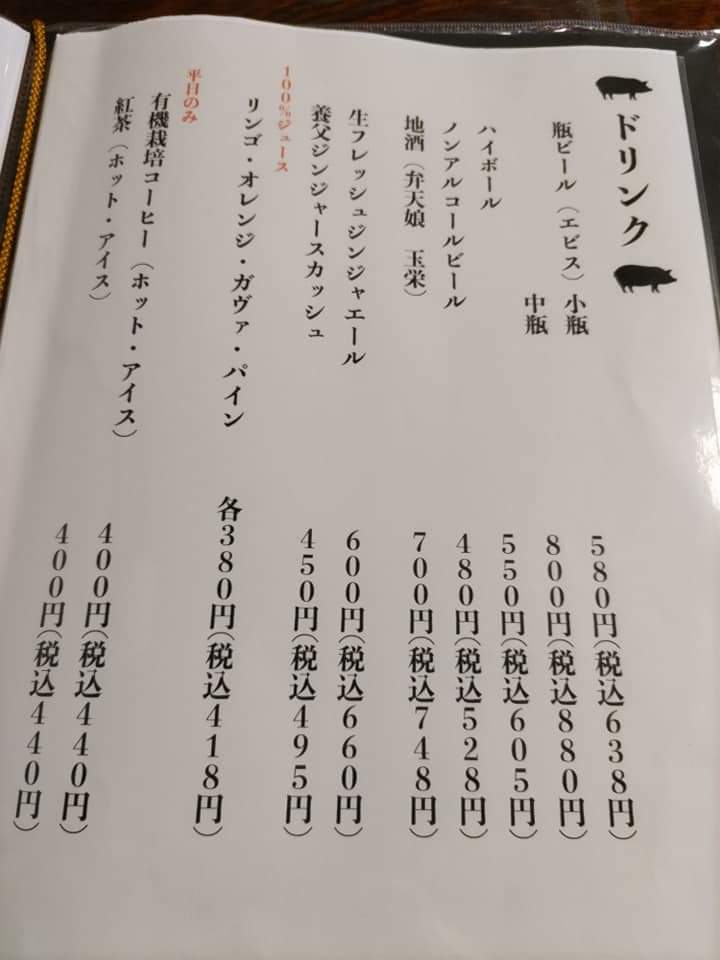 ドリンク
瓶ビール（エビス）小瓶 580円（税込638円）
中瓶 800円（税込880円）
ハイボール 550円（税込605円）
ノンアルコールビール 480円（税込528円）
地酒（弁天娘 玉栄） 700円（税込748円）
生フレッシュジンジャエール 600円（税込660円）
養父ジンジャースカッシュ 450円（税込495円）
100%ジュース
リンゴ・オレンジ・ガヴァ・パイン 各380円（税込418円）
平日のみ
有機栽培コーヒー（ホット・アイス） 400円（税込440円）
紅茶（ホット・アイス） 400円（税込440円）